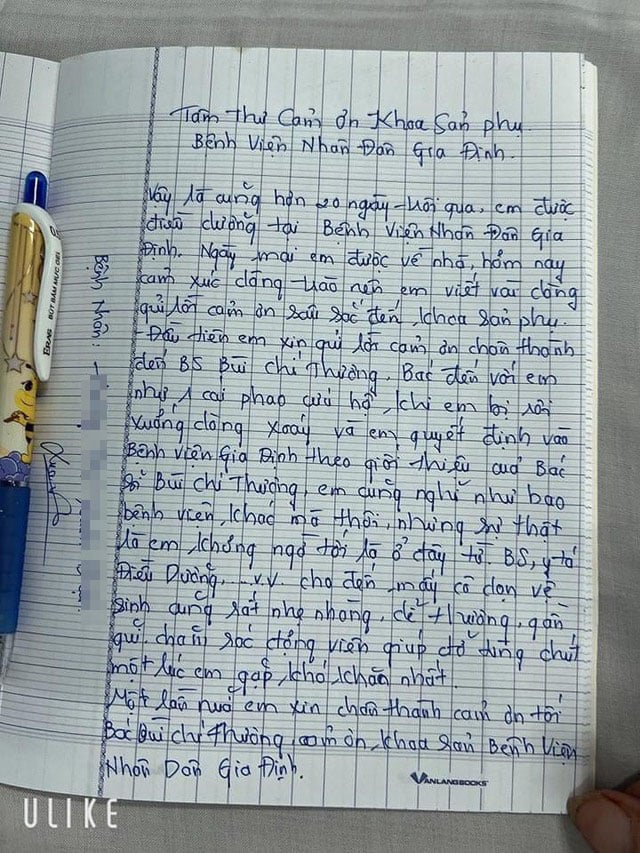 Tâm thư Cảm ơn Khoa Sản phụ
Bệnh Viện Nhân Dân Gia Định.
Vậy là cũng hơn 20 ngày trôi qua, em được
điều dưỡng tại Bệnh Viện Nhân Dân Gia
Định. Ngày mai em được về nhà, hôm nay
cảm xúc dâng trào nên em viết vài dòng
gửi lời cảm ơn sâu sắc đến khoa sản phụ.
- Đầu tiên em xin gửi lời cảm ơn chân thành
đến BS Bùi Chí Thương, Bác đến với em
như 1 cái phao cứu hộ, khi em bị rơi
xuống dòng xoáy và em quyết định vào
Bệnh viện Gia Định theo giới thiệu của Bác
Sĩ Bùi Chí Thương, em cũng nghĩ như bao
bệnh viện khác mà thôi, nhưng sự thật
là em không ngờ tới là ở đây từ BS, y tá
Điều Dưỡng, ...v.v. cho đến mấy cô dọn vệ
sinh cũng rất nhẹ nhàng, dễ thương, gần
gũi chăm sóc động viên giúp đỡ từng chút
một lúc em gặp khó khăn nhất.
Một lần nữa em xin chân thành cảm ơn tới
Bác Bùi Chí Thương, cảm ơn khoa sản Bệnh Viện
Nhân Dân Gia Định.
Bệnh Nhân:
VANLANGBOOKS
BÚT BẤM MỰC GEL
ULIKE